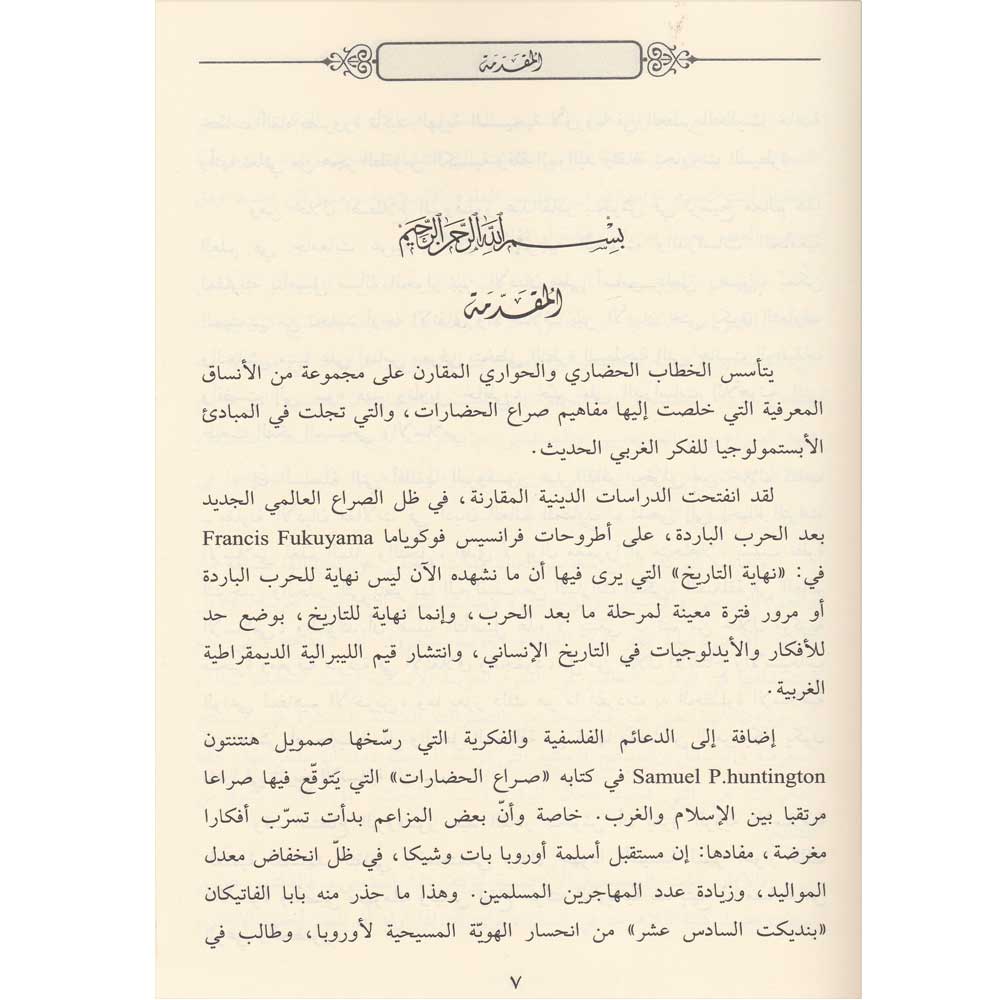 المقدمة
بسم الله الرحمن الرحيم
المُقَدّمَة
يتأسس الخطاب الحضاري والحواري المقارن على مجموعة من الأنساق
المعرفية التي خلصت إليها مفاهيم صراع الحضارات، والتي تجلت في المبادئ
الأبستمولوجيا للفكر الغربي الحديث.
لقد انفتحت الدراسات الدينية المقارنة، في ظل الصراع العالمي الجديد
بعد الحرب الباردة، على أطروحات فرانسيس فوكوياما Francis Fukuyama
في: «نهاية التاريخ» التي يرى فيها أن ما نشهده الآن ليس نهاية للحرب الباردة
أو مرور فترة معينة لمرحلة ما بعد الحرب، وإنما نهاية للتاريخ، بوضع حد
للأفكار والأيدلوجيات في التاريخ الإنساني، وانتشار قيم الليبرالية الديمقراطية
الغربية.
إضافة إلى الدعائم الفلسفية والفكرية التي رسّخها صمويل هنتنتون
Samuel P.huntington في كتابه «صراع الحضارات» التي يَتوقّع فيها صراعا
مرتقبا بين الإسلام والغرب. خاصة وأنّ بعض المزاعم بدأت تسرّب أفكارا
مغرضة، مفادها: إن مستقبل أسلمة أوروبا بات وشيكا، في ظلّ انخفاض معدل
المواليد، وزيادة عدد المهاجرين المسلمين. وهذا ما حذر منه بابا الفاتيكان
«بنديكت السادس عشر» من انحسار الهويّة المسيحية لأوروبا، وطالب في
٧